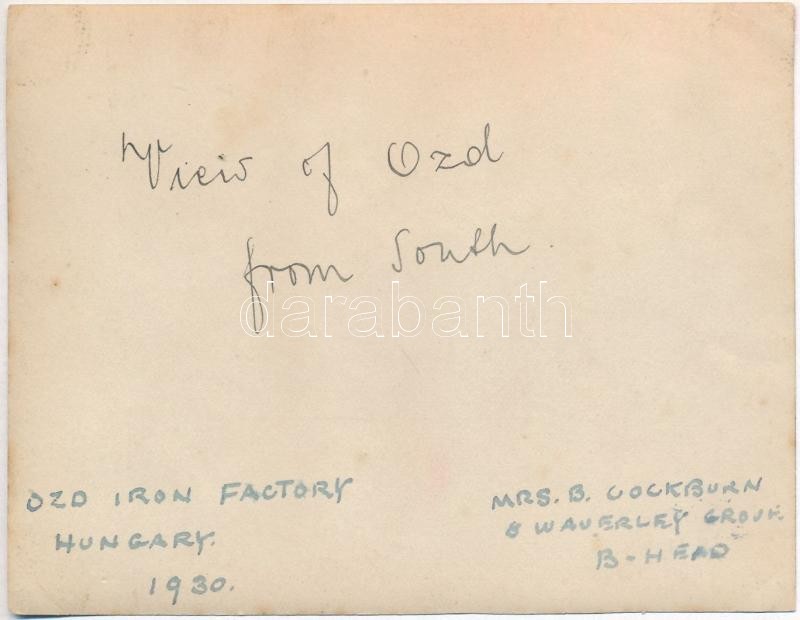 View of Ozd
from South.
darabanth
OZD IRON FACTORY
HUNGARY.
1930.
MRS. B. COCKBURN
8 WAVERLEY GROVE.
B-HEAD